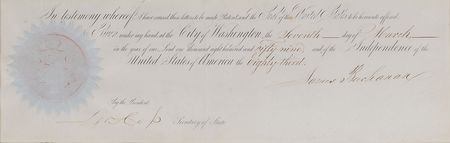 In testimony whereof I have caused these letters to be made Patent and the Seal of the United States to be hereunto affixed.
Given under my hand at the City of Washington, the Seventh day of March
in the year of our Lord one thousand eight hundred and fifty nine and of the Independence of the
United States of America the Eighty third.
James Buchanan
By the President
Secretary of State